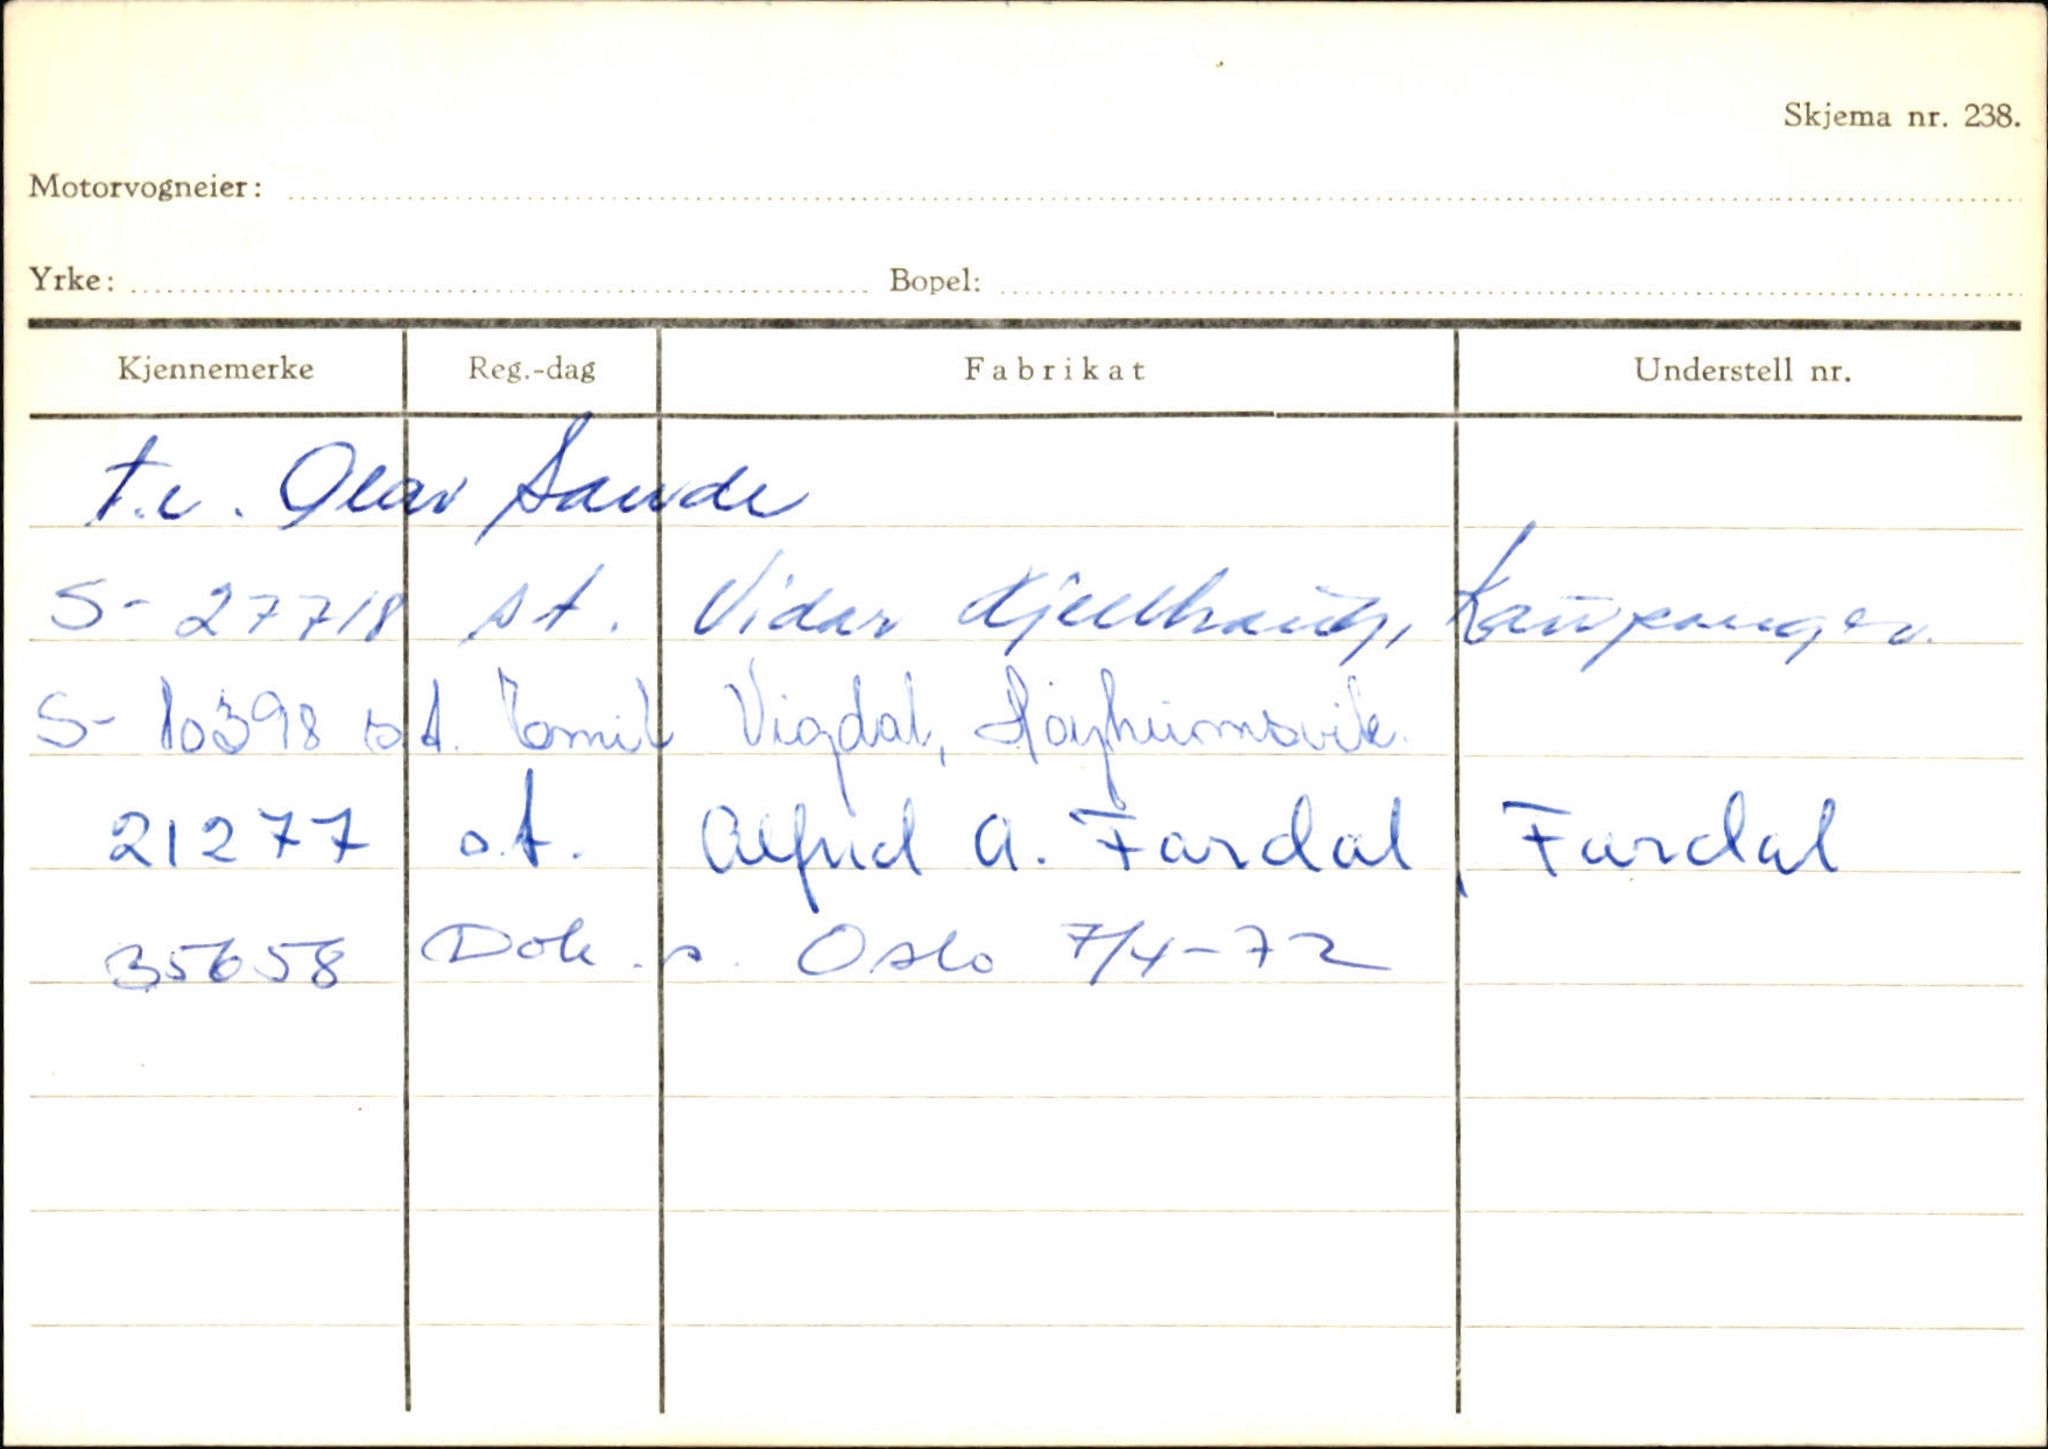 Skjema nr. 238.
Motorvogneier:
Yrke: Bopel:
Kjennemerke Reg.-dag Fabrikat Understell nr.
t.v. Olav Sande
S- 27718 st. Vidar Kjellhaug, Kaupanger.
S- 10398 st. Emil Vigdal, Høyheimsvik.
21277 s.t. Alfred A. Fardal, Fardal
35658 Dok. s. Oslo 7/4-72